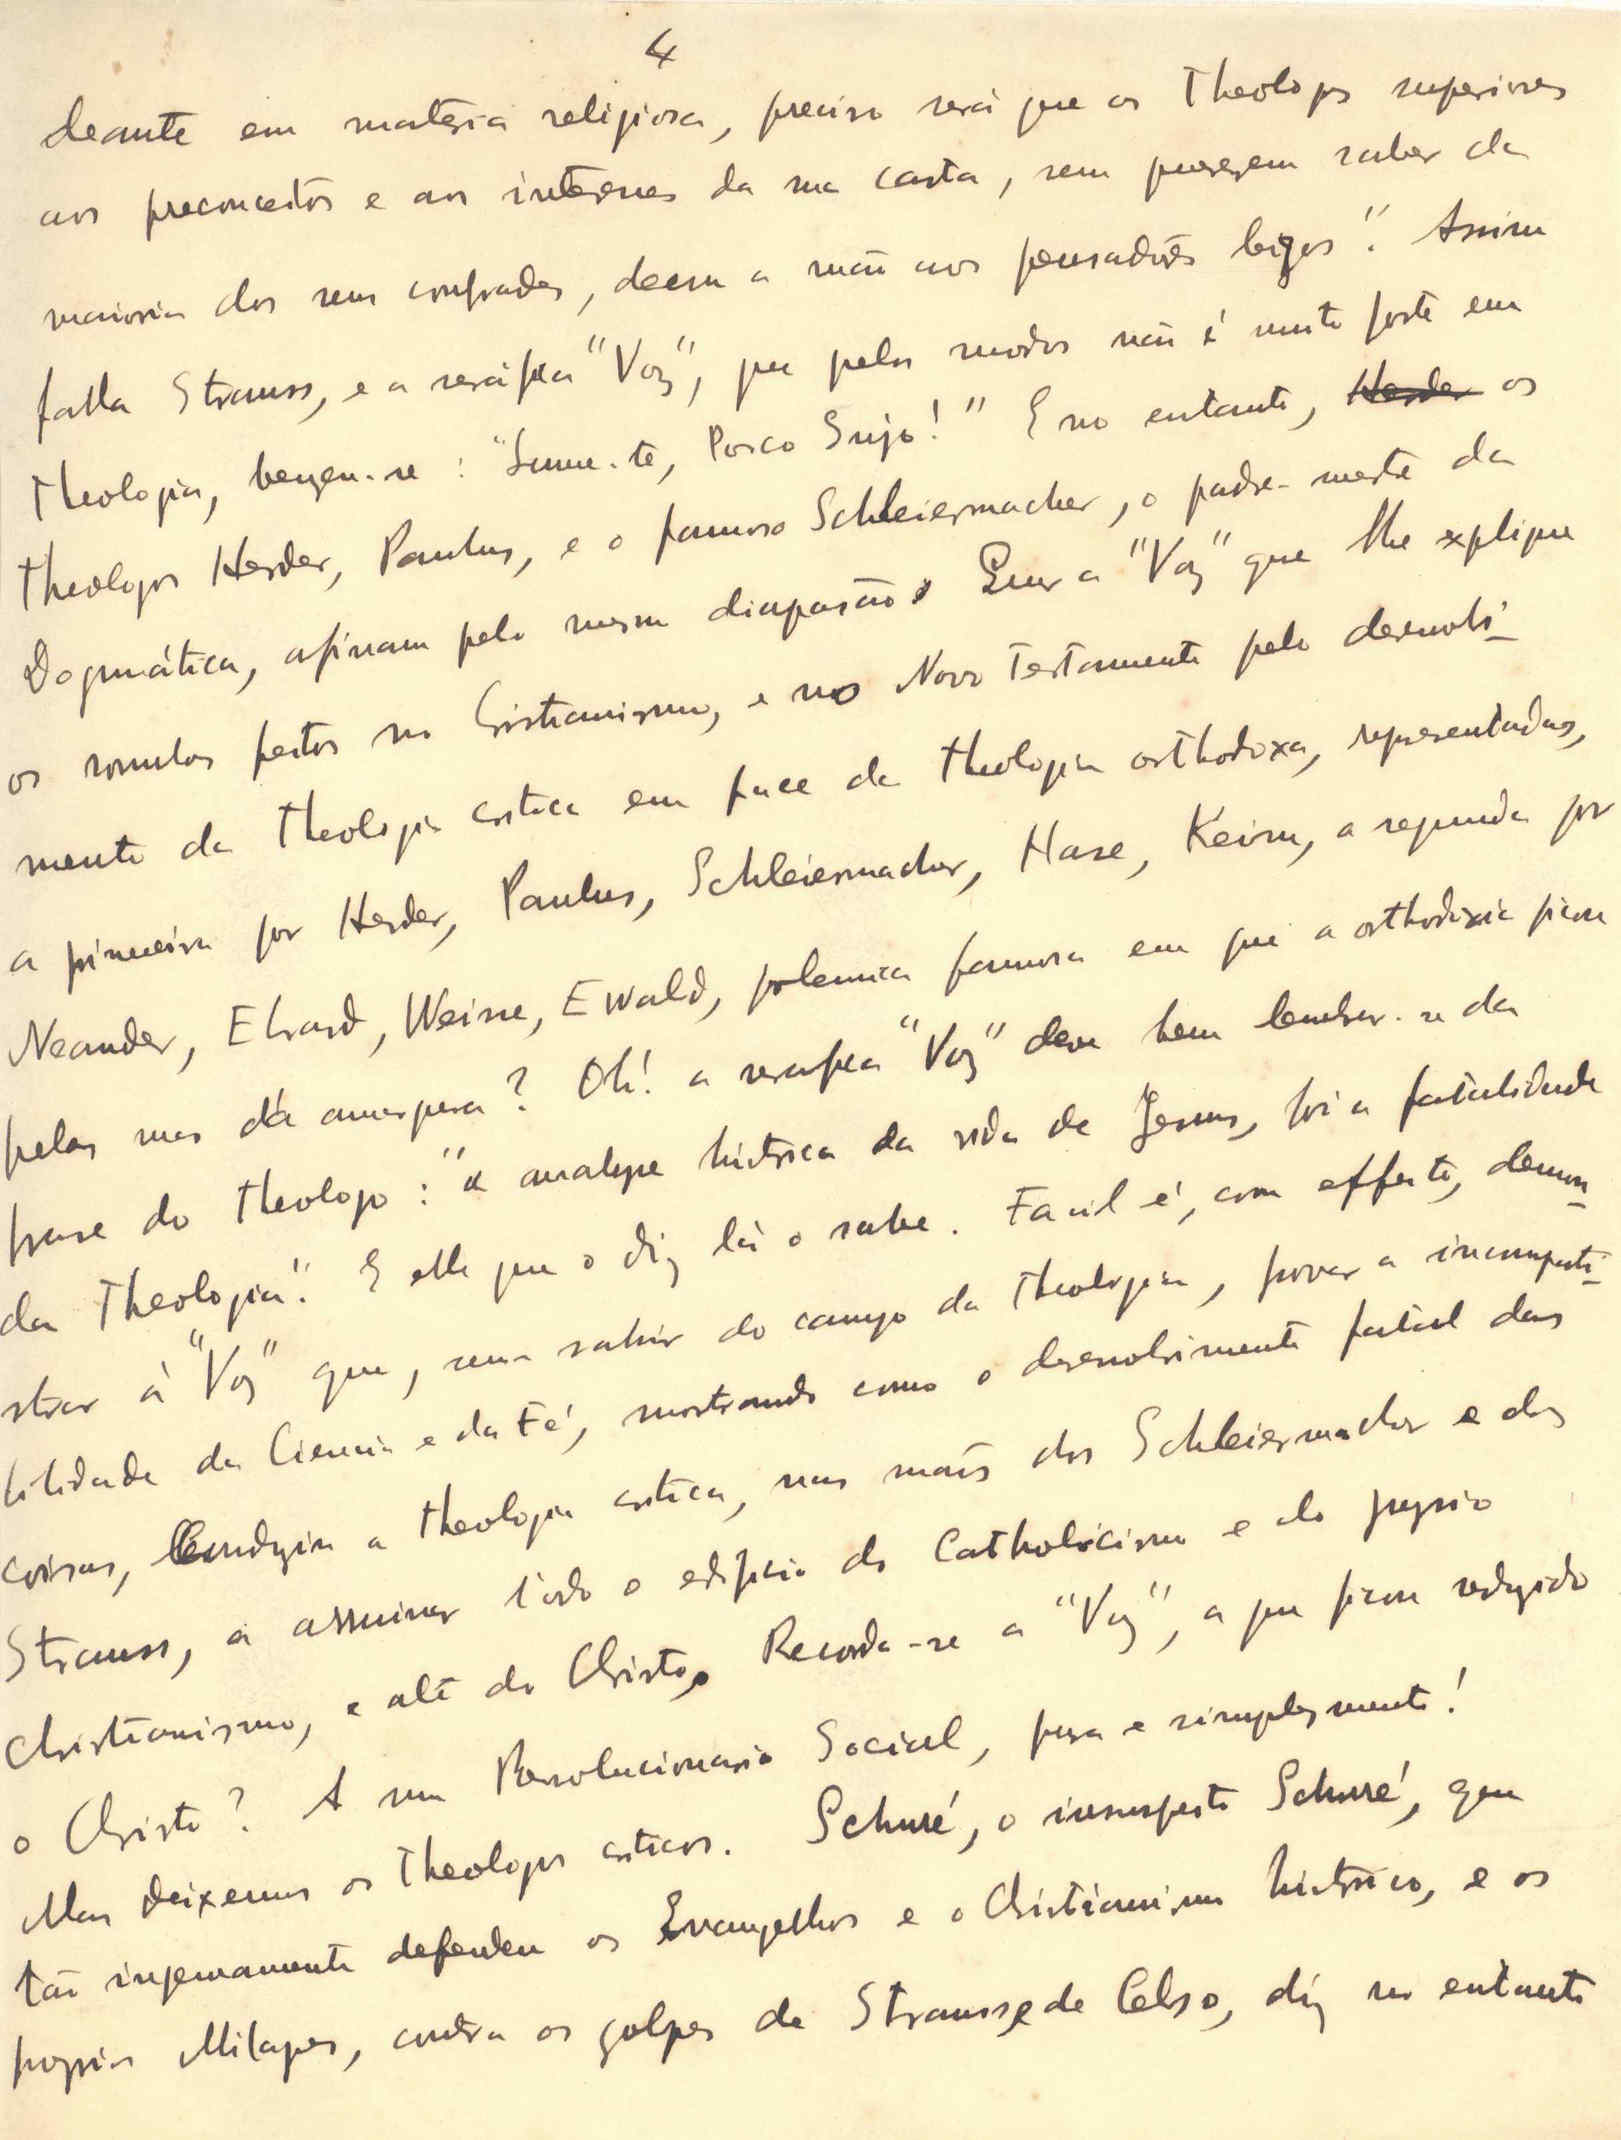 4
deante em materia religiosa, preciso será que os Theologos superiores
aos preconceitos e aos interesses da sua casta, sem quererem saber da
maioria dos seus confrades, deem a mão aos pensadores leigos". Assim
falla Strauss, e a seráfica "Voz", que pelos modos não é muito forte em
Theologia, benzeu-se: "Sume-te, Porco Sujo!" E no entanto, Herder os
Theologos Herder, Paulus, e o famoso Schleiermacher, o padre-mestre da
Dogmática, afinam pelo mesmo diapasão. Quer a "Voz" que lhe explique
os rombos feitos no Cristianismo, e no Novo Testamento pelo desenvolvi-
mento da Theologia critica em face da Theologia orthodoxa, representadas,
a primeira por Herder, Paulus, Schleiermacher, Hase, Keim, a segunda por
Neander, Ebrard, Weisse, Ewald, polemica famosa em que a orthodoxia ficou
pelas ruas da amargura? Oh! a serafica "Voz" deve bem lembrar-se da
frase do Theologo: "a analyse historica da vida de Jesus, foi a fatalidade
da Theologia". E elle que o diz lá o sabe. Facil é, com effeito, demon-
strar à "Voz" que, sem sahir do campo da Theologia, provar a incompati-
bilidade da Ciencia e da Fé, mostrando como o desenvolvimento fatal das
coisas, conduziu a Theologia critica, nas mãos dos Schleiermacher e dos
Strauss, a arruinar todo o edificio do Catholicismo e do proprio
Christianismo, e até do Christo. Recorda-se a "Voz", a que ficou reduzido
o Christo? A um Revolucionario Social, pura e simplesmente!
Mas deixemos os Theologos criticos. Schuré, o insuspeito Schuré, que
tão ingenuamente defendeu os Evangelhos e o Christianismo historico, e os
proprios Milagres, contra os golpes de Strauss, e de Celso, diz no entanto